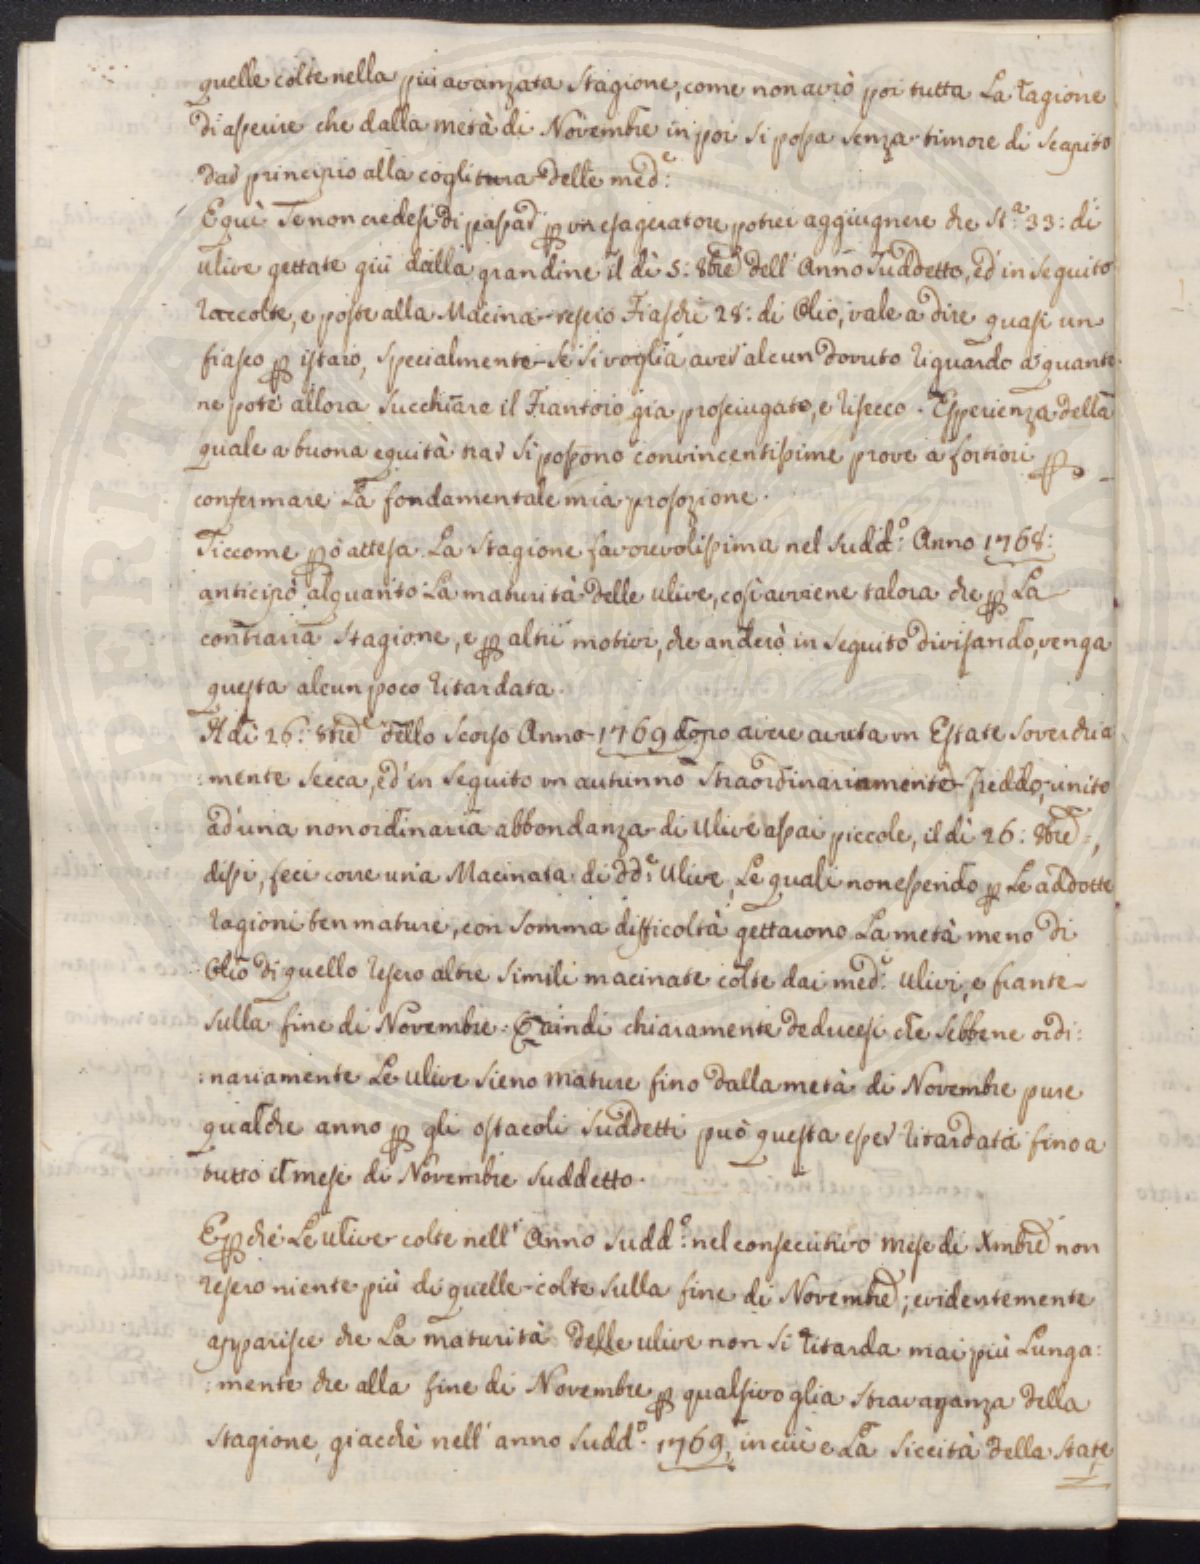 quelle colte nella più avanzata Stagione, come non avrò poi tutta La ragione
di asserire che dalla metà di Novembre in poi si possa senza timore di Scapito
dar principio alla coglitura delle med.e:
E quì Se non credessi di passar p un esageratore, potrei aggiugnere che St.a 33: di
ulive gettate giù dalla grandine il dì 5: 8bre dell' Anno Suddetto, ed in Seguito
raccolte, e poste alla Macina resero Fiaschi 28: di Olio, vale a dire quasi un
fiasco p istaio, Specialmente Se si voglia aver alcun dovuto riguardo a quante
ne potè allora Succhiare il Frantoio già prosciugato, e risecco. Esperienza della
quale a buona equità trar si possono convincentissime prove a fortiori p
confermare La fondamentale mia proposizione.
Siccome p ò attesa La Stagione favorevolissima nel Sudd.o Anno 1768:
anticipò alquanto La maturità delle ulive, così avviene talora che p La
contraria Stagione, e p altri motivi, che anderò in Seguito divisando, venga
questa alcun poco ritardata.
A dì 26: 8bre dello Scorso Anno 1769 dopo avere avuta un Estate Soverchia
:mente Secca, ed in Seguito un autunno Straordinariamente freddo, unito
ad una non ordinaria abbondanza di Ulive assai piccole, il dì 26: 8bre,
dissi, feci corre una Macinata di dd.e Ulive, Le quali non essendo p Le addotte
ragioni ben mature, con Somma difficoltà gettarono La metà meno di
Olio di quello resero altre Simili macinate colte dai med.i Ulivi, e frante
Sulla fine di Novembre. Quindi chiaramente deducesi che Sebbene ordi:
:nariamente Le Ulive Sieno mature fino dalla metà di Novembre pure
qualche anno p gli ostacoli Suddetti può questa esser ritardata fino a
tutto il mese di Novembre Suddetto.
E p chè Le Ulive colte nell' Anno Sudd.o nel consecutivo Mese di Xmbre non
resero niente più di quelle colte Sulla fine di Novembre; evidentemente
apparisce che La maturità delle ulive non Si ritarda mai più Lunga:
:mente che alla fine di Novembre p qualsivoglia Stravaganza della
Stagione, giacchè nell' anno Sudd.o 1769, in cui e La Siccità della State